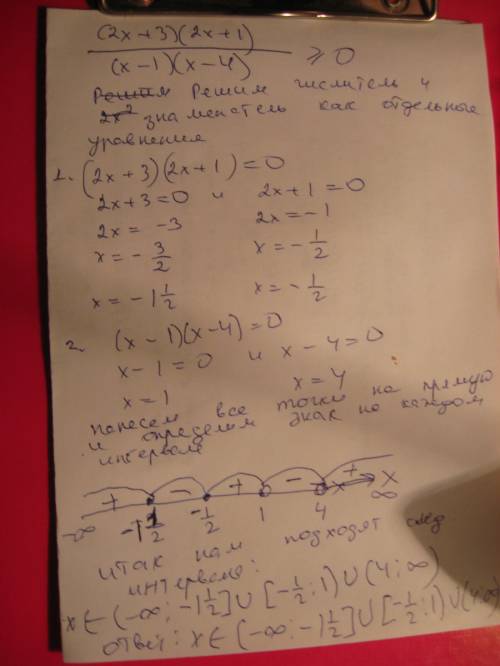 (2x+3)(2x+1)
(x-1)(x-4) ≥ 0
Решим числитель и
знаменатель как отдельные
уравнения
1. (2x+3)(2x+1)=0
2x+3=0 и 2x+1=0
2x= -3 2x=-1
x=-3/2 x=-1/2
x=-1 1/2 x=-1/2
2. (x-1)(x-4)=0
x-1=0 и x-4=0
x=1 x=4
нанесем все точки на прямую
и определим знак на каждом
интервале
+ - + - +
-∞ -1 1/2 -1/2 1 4 ∞ x
итак нам подходят след.
интервалы:
x∈(-∞;-1 1/2]∪[-1/2;1)∪(4;∞)
ответ: x∈(-∞;-1 1/2]∪[-1/2;1)∪(4;∞)